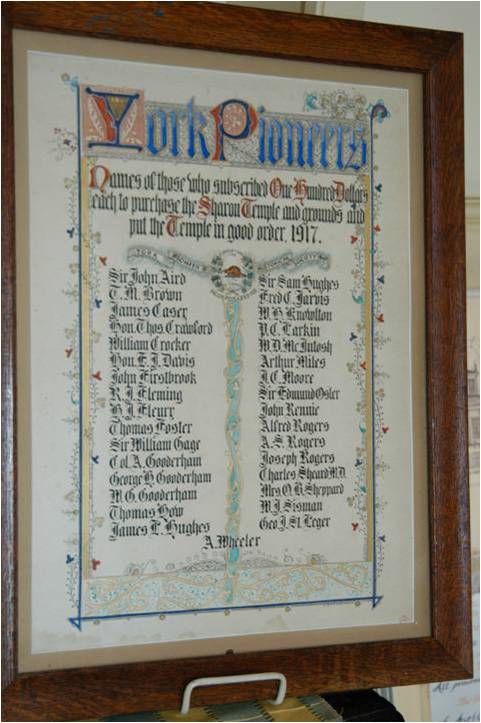 York Pioneers
Names of those who subscribed One Hundred Dollars
each to purchase the Sharon Temple and grounds and
put the Temple in good order, 1917.
Sir John Aird
T. M. Brown
James Casey
Hon. Thos. Crawford
William Crocker
Hon. E. J. Davis
John Firstbrook
R. J. Fleming
H. J. Fleury
Thomas Foster
Sir William Gage
Col. A. Gooderham
George H. Gooderham
M. G. Gooderham
Thomas How
James L. Hughes
Sir Sam Hughes
Fred C. Jarvis
W. H. Knowlton
P. C. Larkin
W. D. McIntosh
Arthur Miles
J. C. Moore
Sir Edmund Osler
John Rennie
Alfred Rogers
A. S. Rogers
Joseph Rogers
Charles Sheard M.D.
Mrs O. B. Sheppard
W. J. Sisman
Geo. J. St. Leger
A. Wheeler